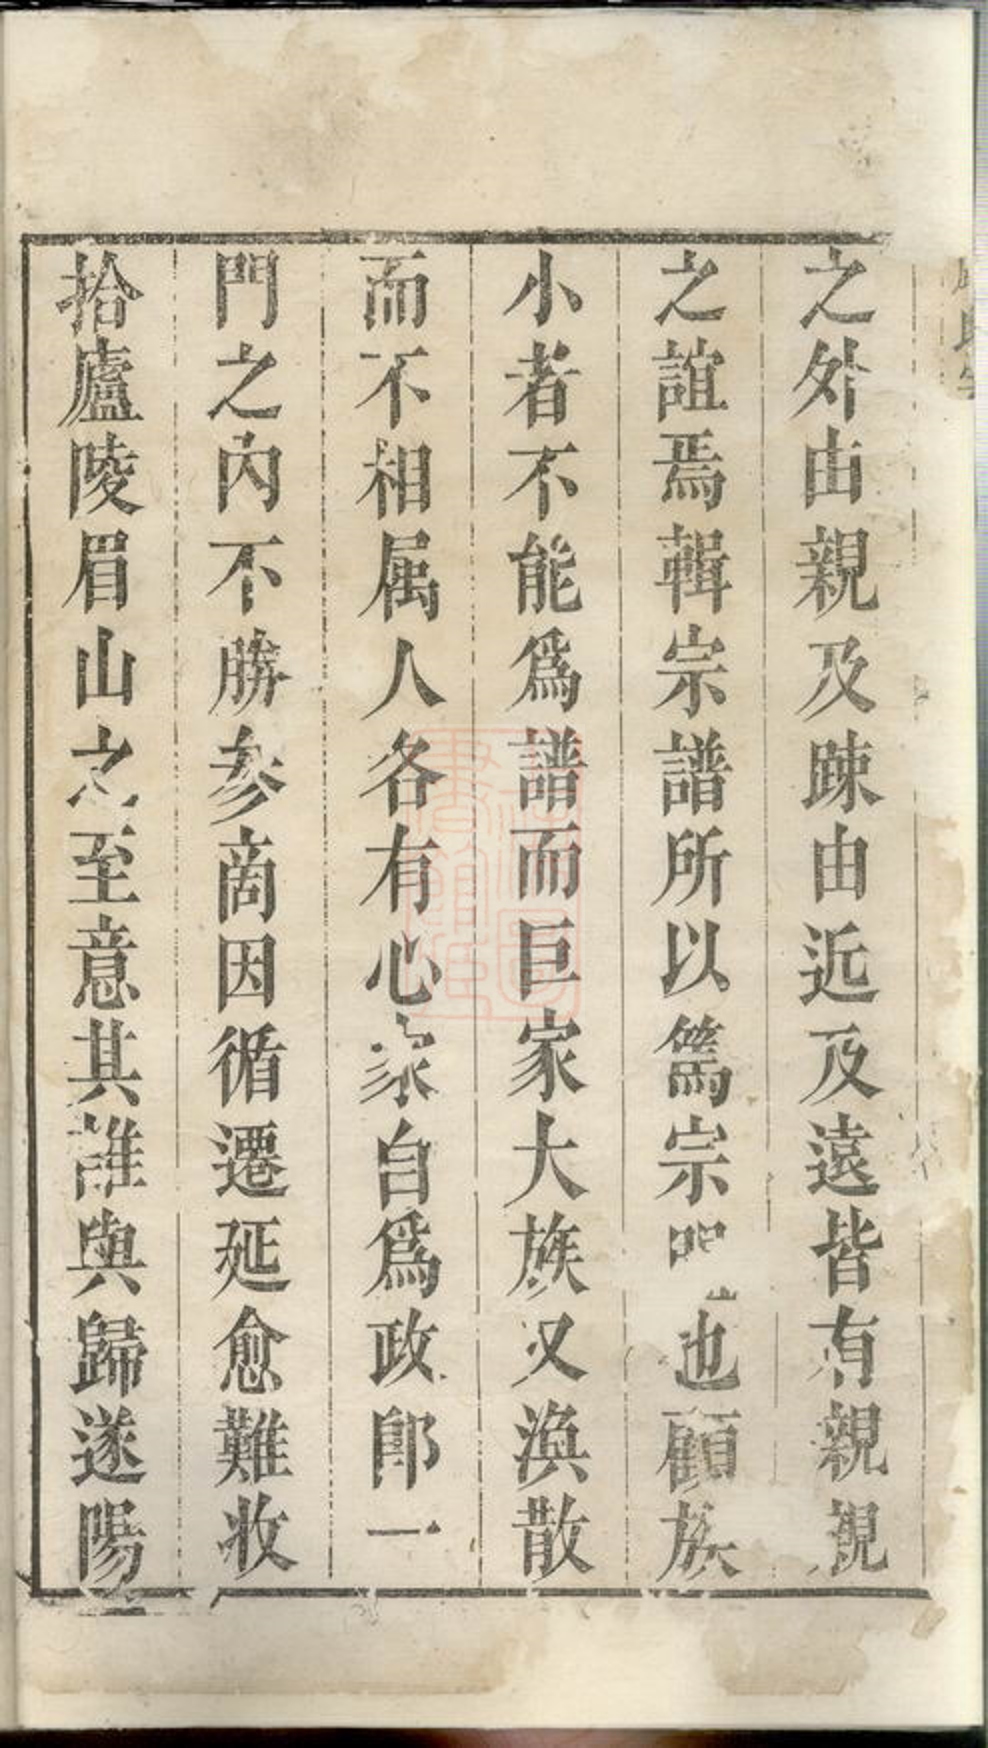 之外由親及疎由近及遠皆有親親
之誼焉輯宗譜所以篤宗也顧族
小者不能爲譜而巨家大族又渙散
而不相属人各有心家自爲政郎一
門之內不勝參商因循遷延愈難收
拾廬陵眉山之至意其誰與歸遂陽